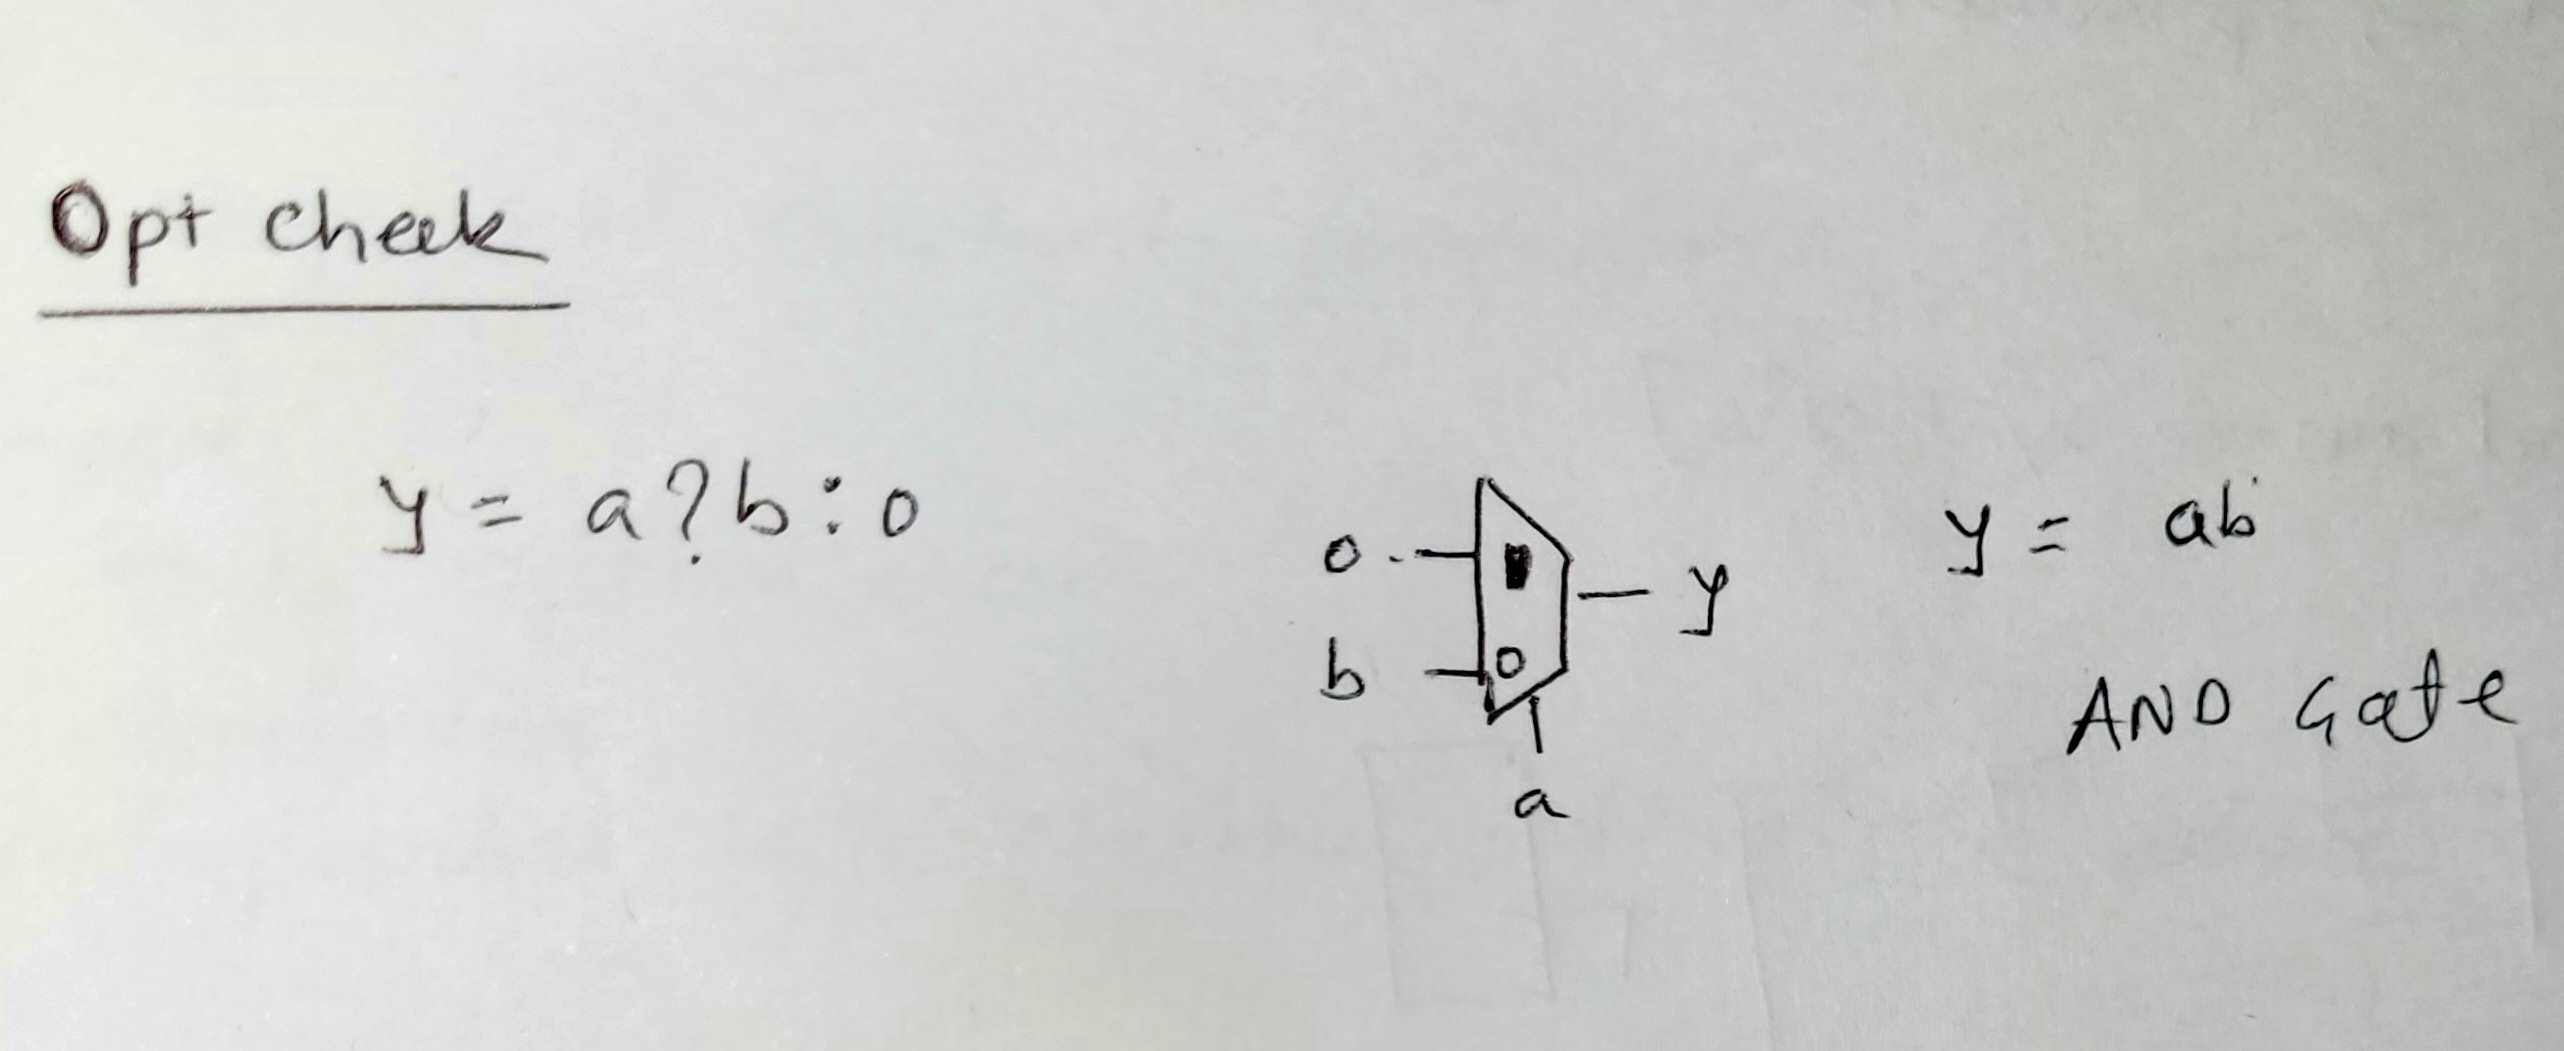 Opt cheek
y = a?b:0
0
b
0
y
a
y = ab
AND Gate